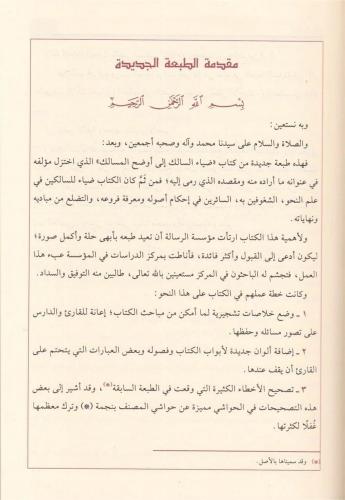 مقدمة الطبعة الجديدة
بسم الله الرحمن الرحيم
وبه نستعين:
والصلاة والسلام على سيدنا محمد وآله وصحبه أجمعين، وبعد:
فهذه طبعة جديدة من كتاب «ضياء السالك إلى أوضح المسالك» الذي اختزل مؤلفه
في عنوانه ما أراده منه ومقصده الذي رمى إليه؛ فمن ثَمَّ كان الكتاب ضياء للسالكين في
علم النحو، الشغوفين به، السائرين في إحكام أصوله ومعرفة فروعه، والتضلع من مباديه
ونهاياته.
ولأهمية هذا الكتاب ارتأت مؤسسة الرسالة أن تعيد طبعه بأبهى حلة وأكمل صورة؛
ليكون أدعى إلى القبول وأكثر فائدة، فأناطت بمركز الدراسات في المؤسسة عبء هذا
العمل، فتجشم له الباحثون في المركز مستعينين بالله تعالى، طالبين منه التوفيق والسداد.
وكانت خطة عملهم في الكتاب على هذا النحو:
١ ـ وضع خلاصات تشجيرية لما أمكن من مباحث الكتاب؛ إعانة للقارئ والدارس
على تصور مسائله وحفظها.
٢ ـ إضافة ألوان جديدة لأبواب الكتاب وفصوله وبعض العبارات التي يتحتم على
القارئ أن يقف عندها.
٣ ـ تصحيح الأخطاء الكثيرة التي وقعت في الطبعة السابقة(*)، وقد أشير إلى بعض
هذه التصحيحات في الحواشي مميزة عن حواشي المصنف بنجمة (*) وترك معظمها
غُفْلًا لكثرتها.
(*) وقد سميناها بالأصل.